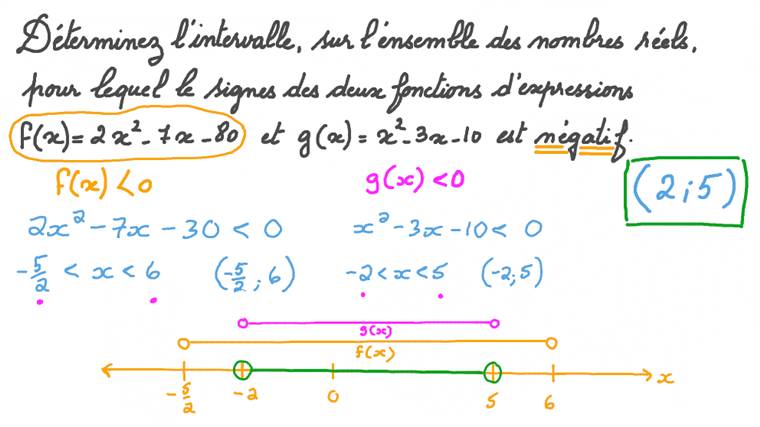 Déterminez l'intervalle, sur l'ensemble des nombres réels,
pour lequel le signes des deux fonctions d'expressions
f(x) = 2x² - 7x - 80 et g(x) = x² - 3x - 10 est négatif.
f(x) < 0 g(x) < 0 (2 ; 5)
2x² - 7x - 30 < 0 x² - 3x - 10 < 0
-5/2 < x < 6 (-5/2 ; 6) -2 < x < 5 (-2 ; 5)
g(x)
f(x)
-5/2 -2 0 5 6 x